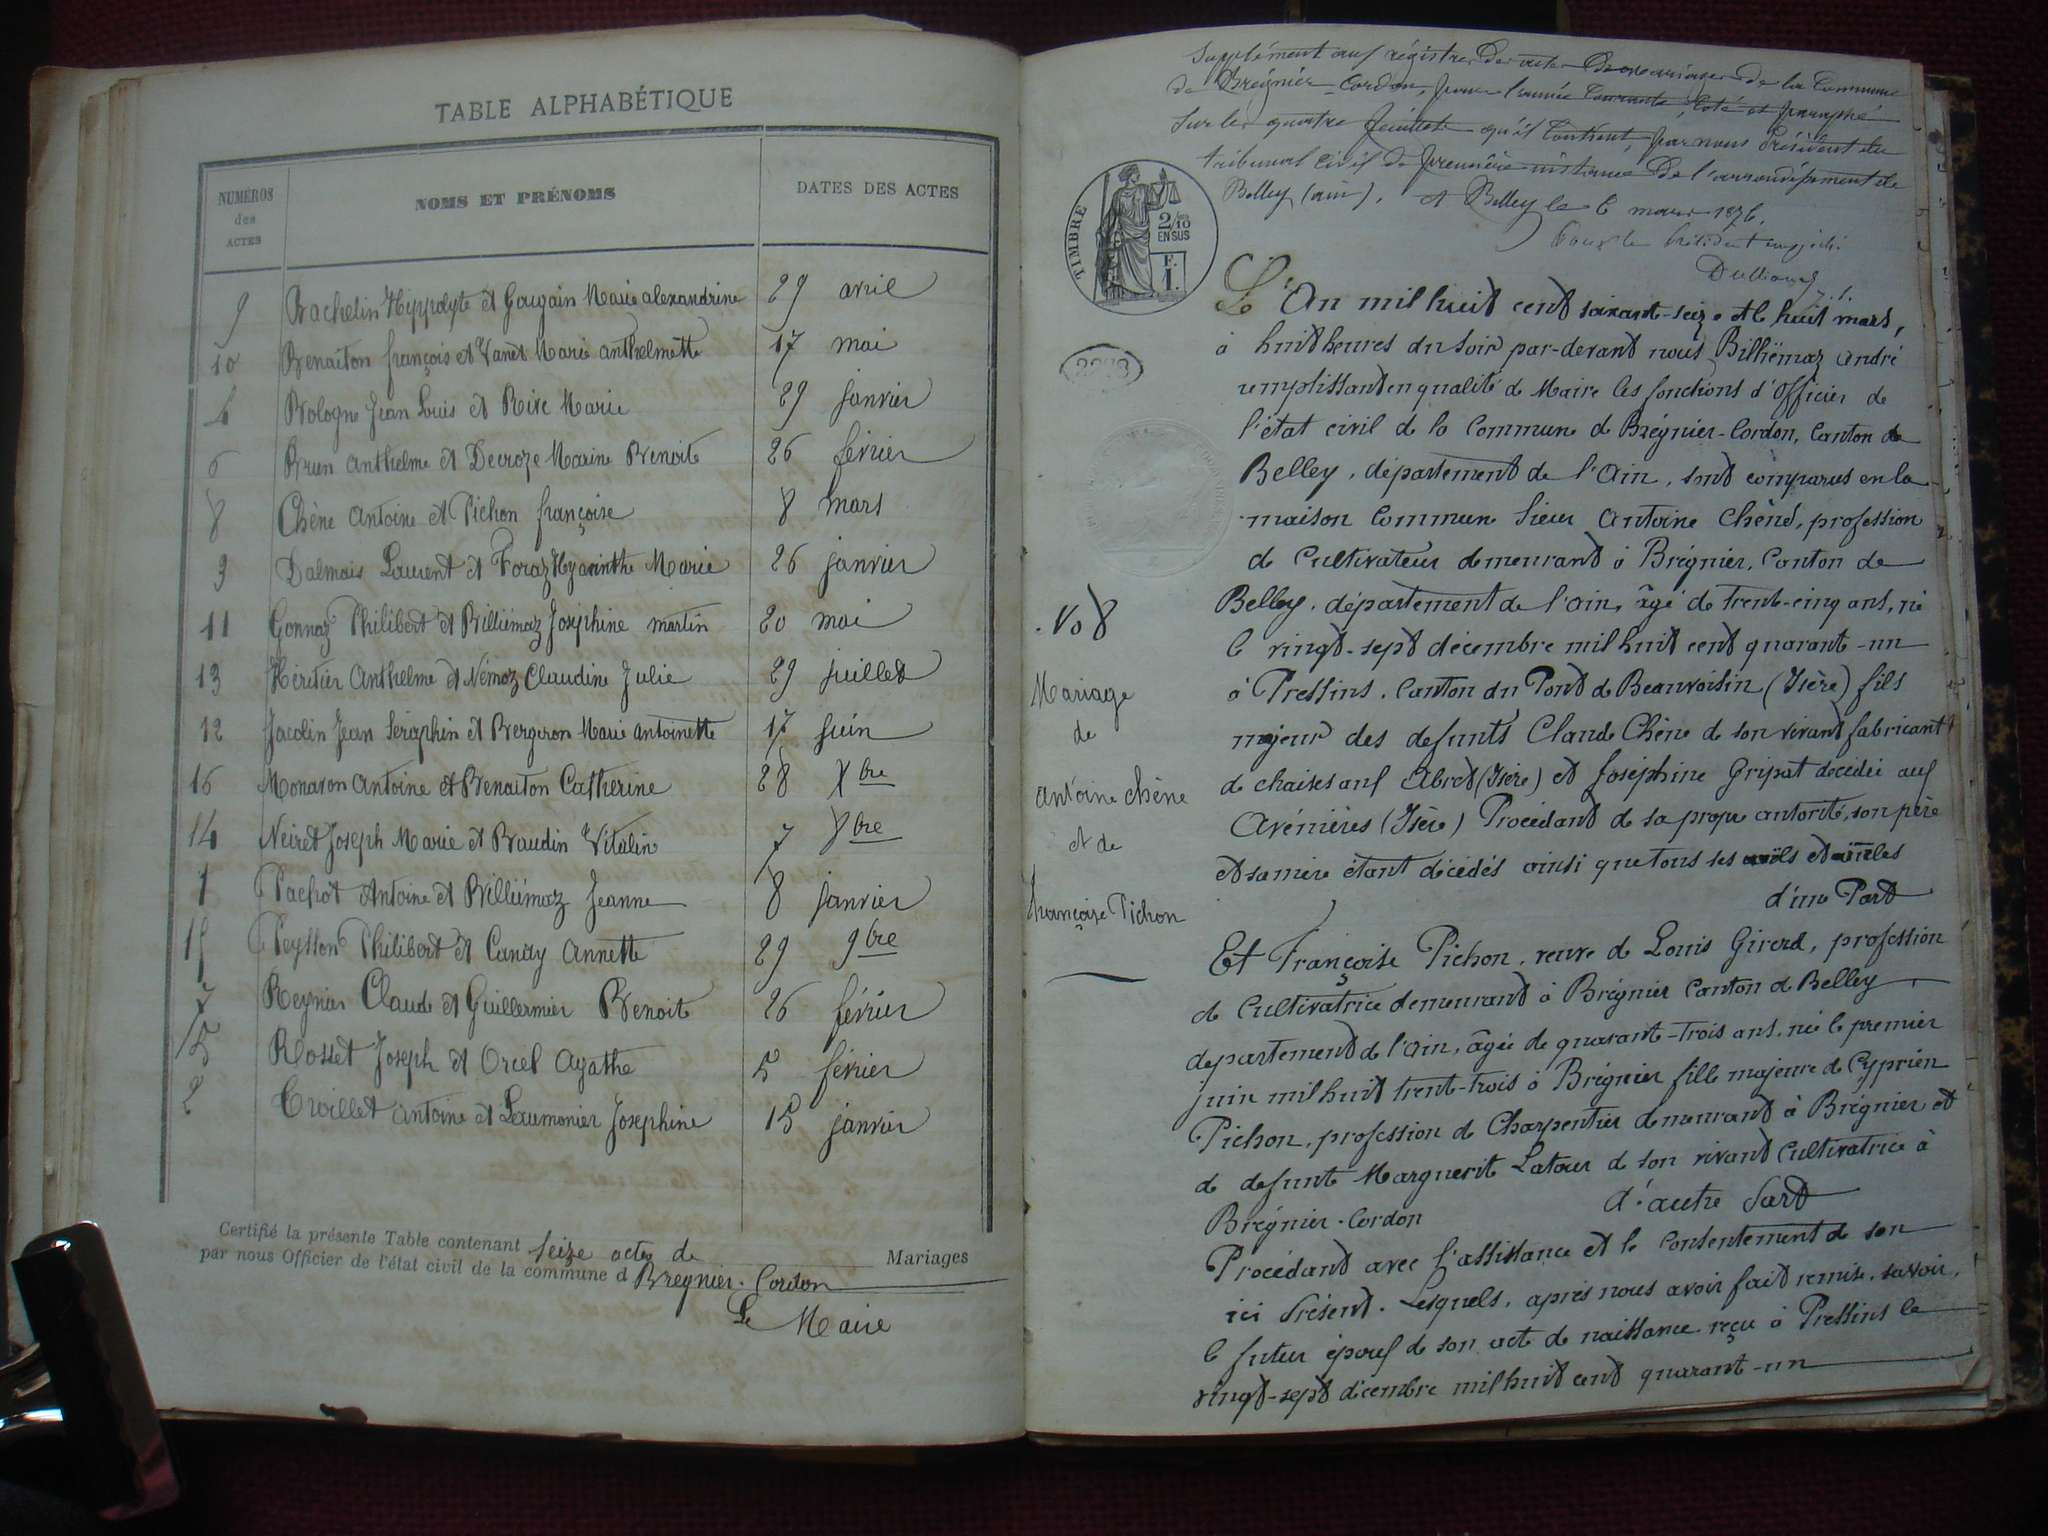 TABLE ALPHABÉTIQUE
NUMÉROS des ACTES
NOMS ET PRÉNOMS
DATES DES ACTES
9 Bachelin Hippolyte et Gougain Marie alexandrine 29 avril
10 Benaiton françois et Vanet Marie anthelmette 17 mai
4 Bologne Jean Louis et Rive Marie 29 janvier
6 Brun anthelme et Decroze Marine Benoite 26 février
8 Chêne antoine et Pichon françoise 8 mars
3 Dalmais Laurent et Foraz Hyacinthe Marie 26 janvier
11 Gonnaz Philibert et Billiémaz Joséphine martin 20 mai
13 Héritier Anthelme et Némoz Claudine Julie 29 juillet
12 Jacolin Jean Séraphin et Bergeron Marie antoinette 17 juin
16 Monavon Antoine et Benaiton Catherine 28 Xbre
14 Neiret Joseph Marie et Baudin Vitalin 7 8bre
1 Pachot Antoine et Billiémaz Jeanne 8 janvier
15 Peysson Philibert et Canay Annette 29 9bre
7 Reynier Claude et Guillermier Benoit 26 février
5 Rosset Joseph et Orcel Agathe 5 février
2 Trillet antoine et Laumonier Josephine 15 janvier
Certifié la présente Table contenant seize actes de Mariages
par nous Officier de l'état civil de la commune d Bregnier-Cordon
Le Maire
Supplément aux régistres des actes de mariages de la Commune
de Brégnier-Cordon, pour l'année Courante, Coté et paraphé
Sur les quatre feuillets qu'il Contient, par nous Président du
tribunal Civil de première instance de l'arrondissement de
Belley (ain). A Belley le 6 mars 1876.
Pour le Président empêché
TIMBRE
2/10
EN SUS
F.
1.
L'An mil huit cent soixante-seize et le huit mars,
à huit heures du soir par-devant nous Billiémaz André
remplissant en qualité de Maire les fonctions d'Officier de
l'état civil de la Commune de Brégnier-Cordon, Canton de
Belley, département de l'Ain, sont comparus en la
maison Commune Sieur Antoine Chêne, profession
de Cultivateur demeurant à Brégnier, Canton de
Belley, département de l'ain, âgé de trente-cinq ans, né
le vingt-sept décembre mil huit cent quarante-un
à Pressins, Canton du Pont de Beauvoisin (Isère) fils
majeur des defunts Claude Chêne de son vivant fabricant
de chaises aux Abret (Isère) et Joséphine Gripat decédée aux
Avénières (Isère) Procédant de sa propre autorité, son père
et sa mère étant décédés ainsi que tous ses aieuls et aieules
d'une Part
No 8
Mariage
de
Antoine Chêne
et de
Françoise Pichon
Et Françoise Pichon, veuve de Louis Girerd, profession
de Cultivatrice demeurant à Brégnier Canton de Belley
département de l'Ain, âgée de quarante-trois ans, née le premier
juin mil huit trente-trois à Brégnier fille majeure de Cyprien
Pichon, profession de Charpentier demeurant à Brégnier et
de defunte Marguerite Latour de son vivant Cultivatrice à
Brégnier-Cordon d'autre Part
Procédant avec l'assistance et le Consentement de son
ici Présent. Lesquels, après nous avoir fait remise, savoir,
le futur époux de son acte de naissance reçu à Pressins le
vingt-sept décembre mil huit cent quarante-un